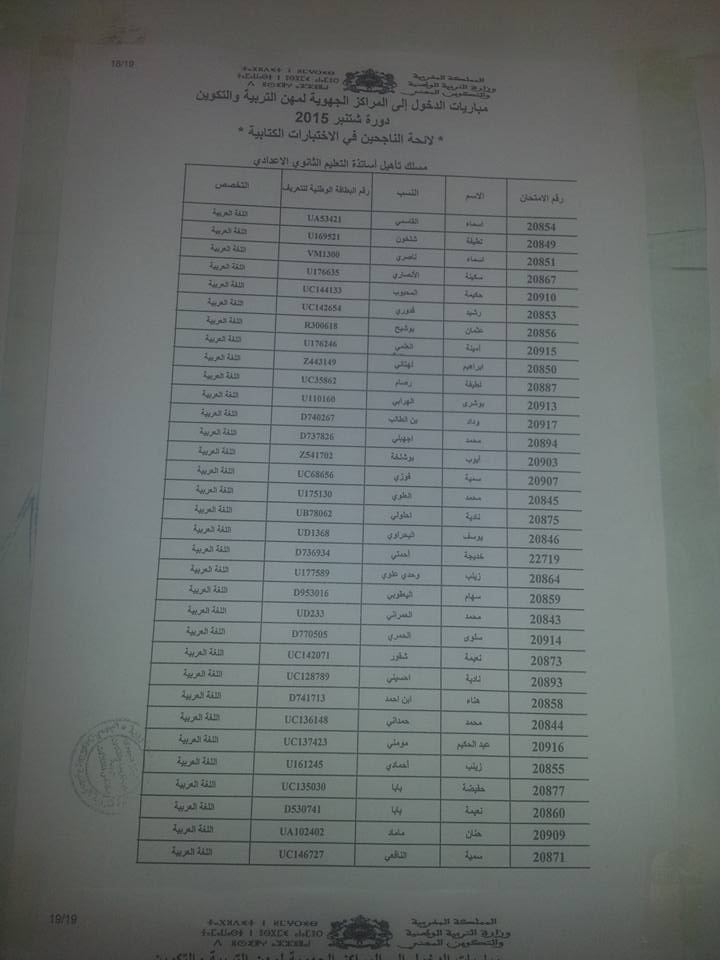 18/19
المملكة المغربية
وزارة التربية الوطنية
والتكوين المهني
مباريات الدخول إلى المراكز الجهوية لمهن التربية والتكوين
دورة شتنبر 2015
* لائحة الناجحين في الاختبارات الكتابية *
مسلك تأهيل أساتذة التعليم الثانوي الاعدادي
رقم الامتحان الاسم النسب رقم البطاقة الوطنية للتعريف التخصص
20854 اسماء القاسمي UA53421 اللغة العربية
20849 لطيفة شلخون U169521 اللغة العربية
20851 اسماء ناصري VM1300 اللغة العربية
20867 سكينة الأنصاري U176635 اللغة العربية
20910 حكيمة المحبوب UC144133 اللغة العربية
20853 رشيد قدوري UC142654 اللغة العربية
20856 عثمان بوشيح R300618 اللغة العربية
20915 أمينة العلمي U176246 اللغة العربية
20850 ابراهيم لهناني Z443149 اللغة العربية
20887 لطيفة رصام UC35862 اللغة العربية
20913 بوشرى الهرابي U110160 اللغة العربية
20917 وداد بن الطالب D740267 اللغة العربية
20894 محمد اجهبلي D737826 اللغة العربية
20903 أيوب بوشلخة Z541702 اللغة العربية
20907 سمية فوزي UC68656 اللغة العربية
20845 محمد العلوي U175130 اللغة العربية
20875 نادية احلولي UB78062 اللغة العربية
20846 يوسف البحراوي UD1368 اللغة العربية
22719 خديجة أحمتي D736934 اللغة العربية
20864 زينب وحدي علوي U177589 اللغة العربية
20859 سهام اليعقوبي D953016 اللغة العربية
20843 محمد العمراني UD233 اللغة العربية
20914 سلوى الحمري D770505 اللغة العربية
20873 نعيمة شقور UC142071 اللغة العربية
20893 نادية احسيني UC128789 اللغة العربية
20858 هناء ابن احمد D741713 اللغة العربية
20844 محمد حمداني UC136148 اللغة العربية
20916 عبد الحكيم مومني UC137423 اللغة العربية
20855 زينب أحمادي U161245 اللغة العربية
20877 حفيضة بابا UC135030 اللغة العربية
20860 نعيمة بابا D530741 اللغة العربية
20909 حنان ماماد UA102402 اللغة العربية
20871 سمية النافعي UC146727 اللغة العربية
19/19
المملكة المغربية
وزارة التربية الوطنية
والتكوين المهني
مباريات الدخول إلى المراكز الجهوية لمهن التربية والتكوين